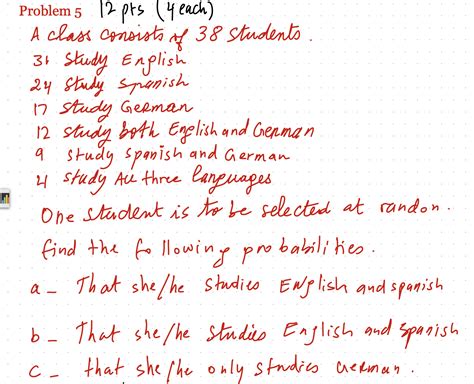 Problem 5 12 pts (4 each)
A class consists of 38 students.
31 Study English
24 Study spanish
17 Study German
12 study both English and German
9 study spanish and German
4 study All three languages
One student is to be selected at randon.
find the following probabilities.
a - That she/he studies English and spanish
b - That she/he studies English and spanish
c - that she/he only studies German.